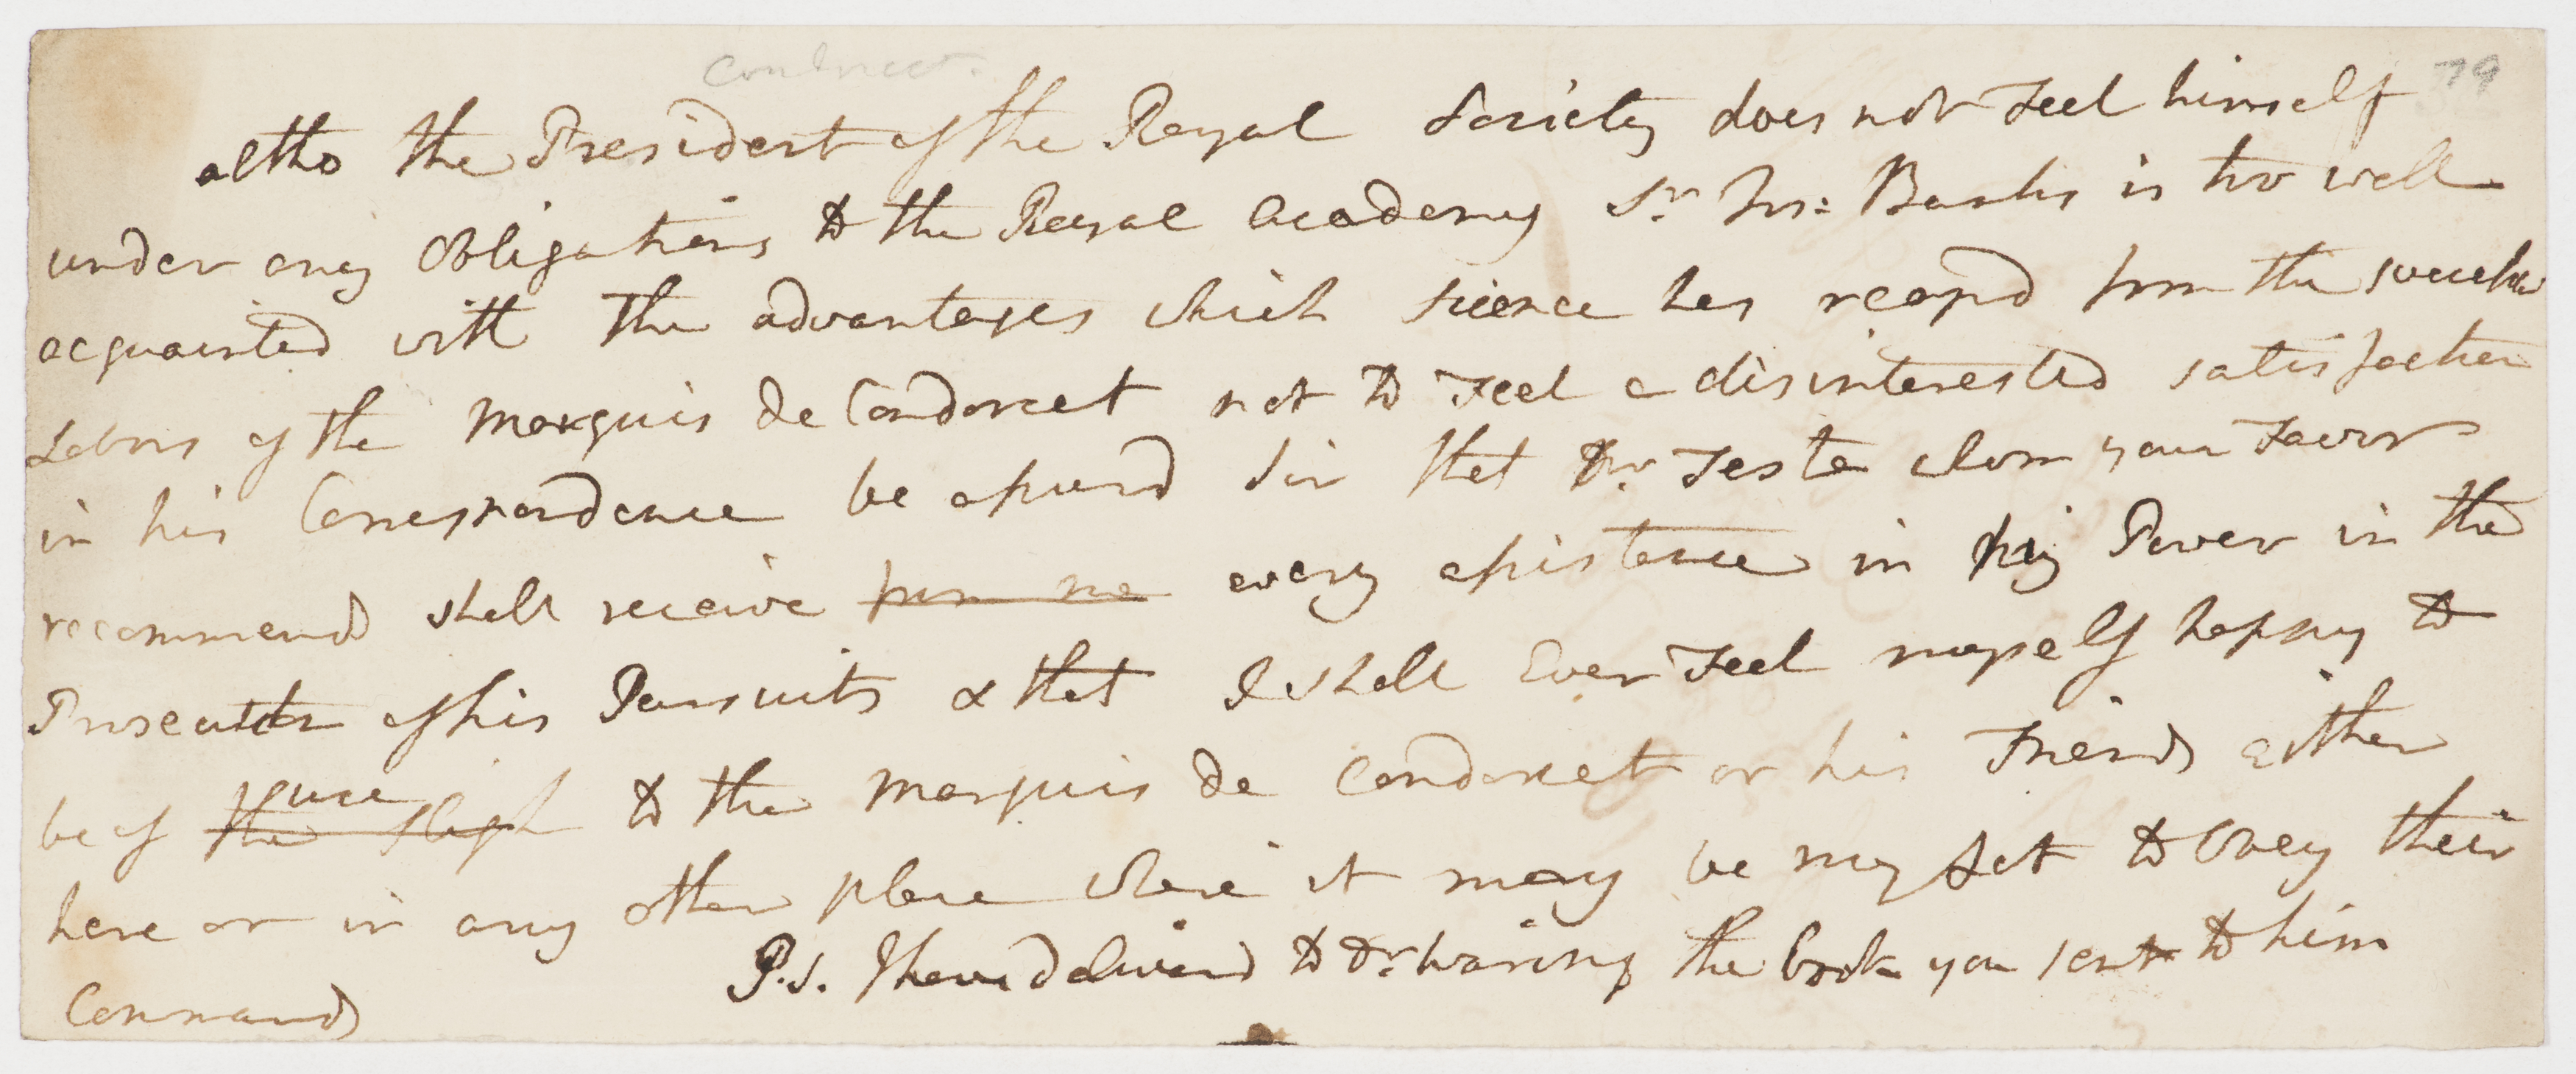 Condorcet.
79
altho the President of the Royal Society does not Feel himself
under any Obligations to the Royal academy Sr. Jos: Banks is too well
acquainted with the advantages which science has reapd from the
Labors of the Marquis de Condorcet not to Feel a disinterested satisfaction
in his Correspondence be assurd Sir that Dr. Testa whom your Favor
recommends shall receive from me every assistance in my Power in the
Prosecution of his Pursuits & that I shall Ever Feel myself happy to
use
be of the to the Marquis de Condorcet or his Friends Either
here or in any other place where it may be my Lot to Obey their
Commands
P.S. I have deliverd to Dr. Waring the book you sent to him